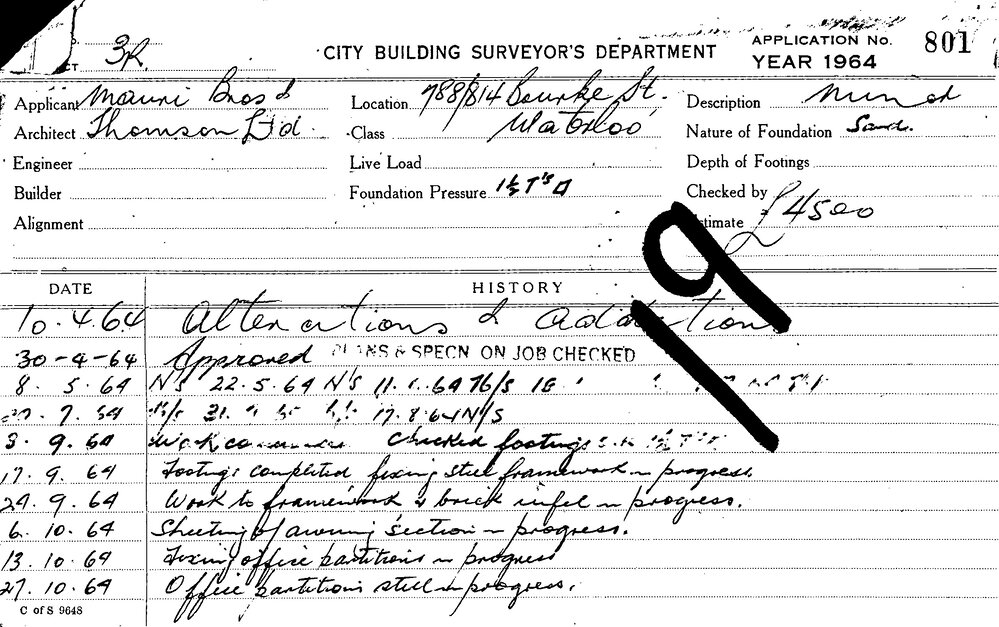 3R. CITY BUILDING SURVEYOR'S DEPARTMENT APPLICATION No. 801
CT YEAR 1964
Applicant Mauri Bros & Location 788/814 Bourke St. Description Minor
Architect Thomson Ltd. Class Waterloo Nature of Foundation Sand.
Engineer Live Load Depth of Footings
Builder Foundation Pressure 1½ T's □ Checked by
Alignment Estimate £4500
19
DATE HISTORY
10.4.64 Alterations & additions
30-4-64 Approved PLANS & SPECN ON JOB CHECKED
8. 5. 64 N/S 22.5.64 N/S
7. 64 17.8.64 N/S
3. 9. 64 Work Checked footings
17. 9. 64 Footings completed fixing steel framework in progress.
24. 9. 64 Work to framework & brick infil in progress.
6. 10. 64 Sheeting of awning section in progress.
13. 10. 64 Fixing office partitions in progress
27. 10. 64 Office partitions still in progress.
C of S 9648